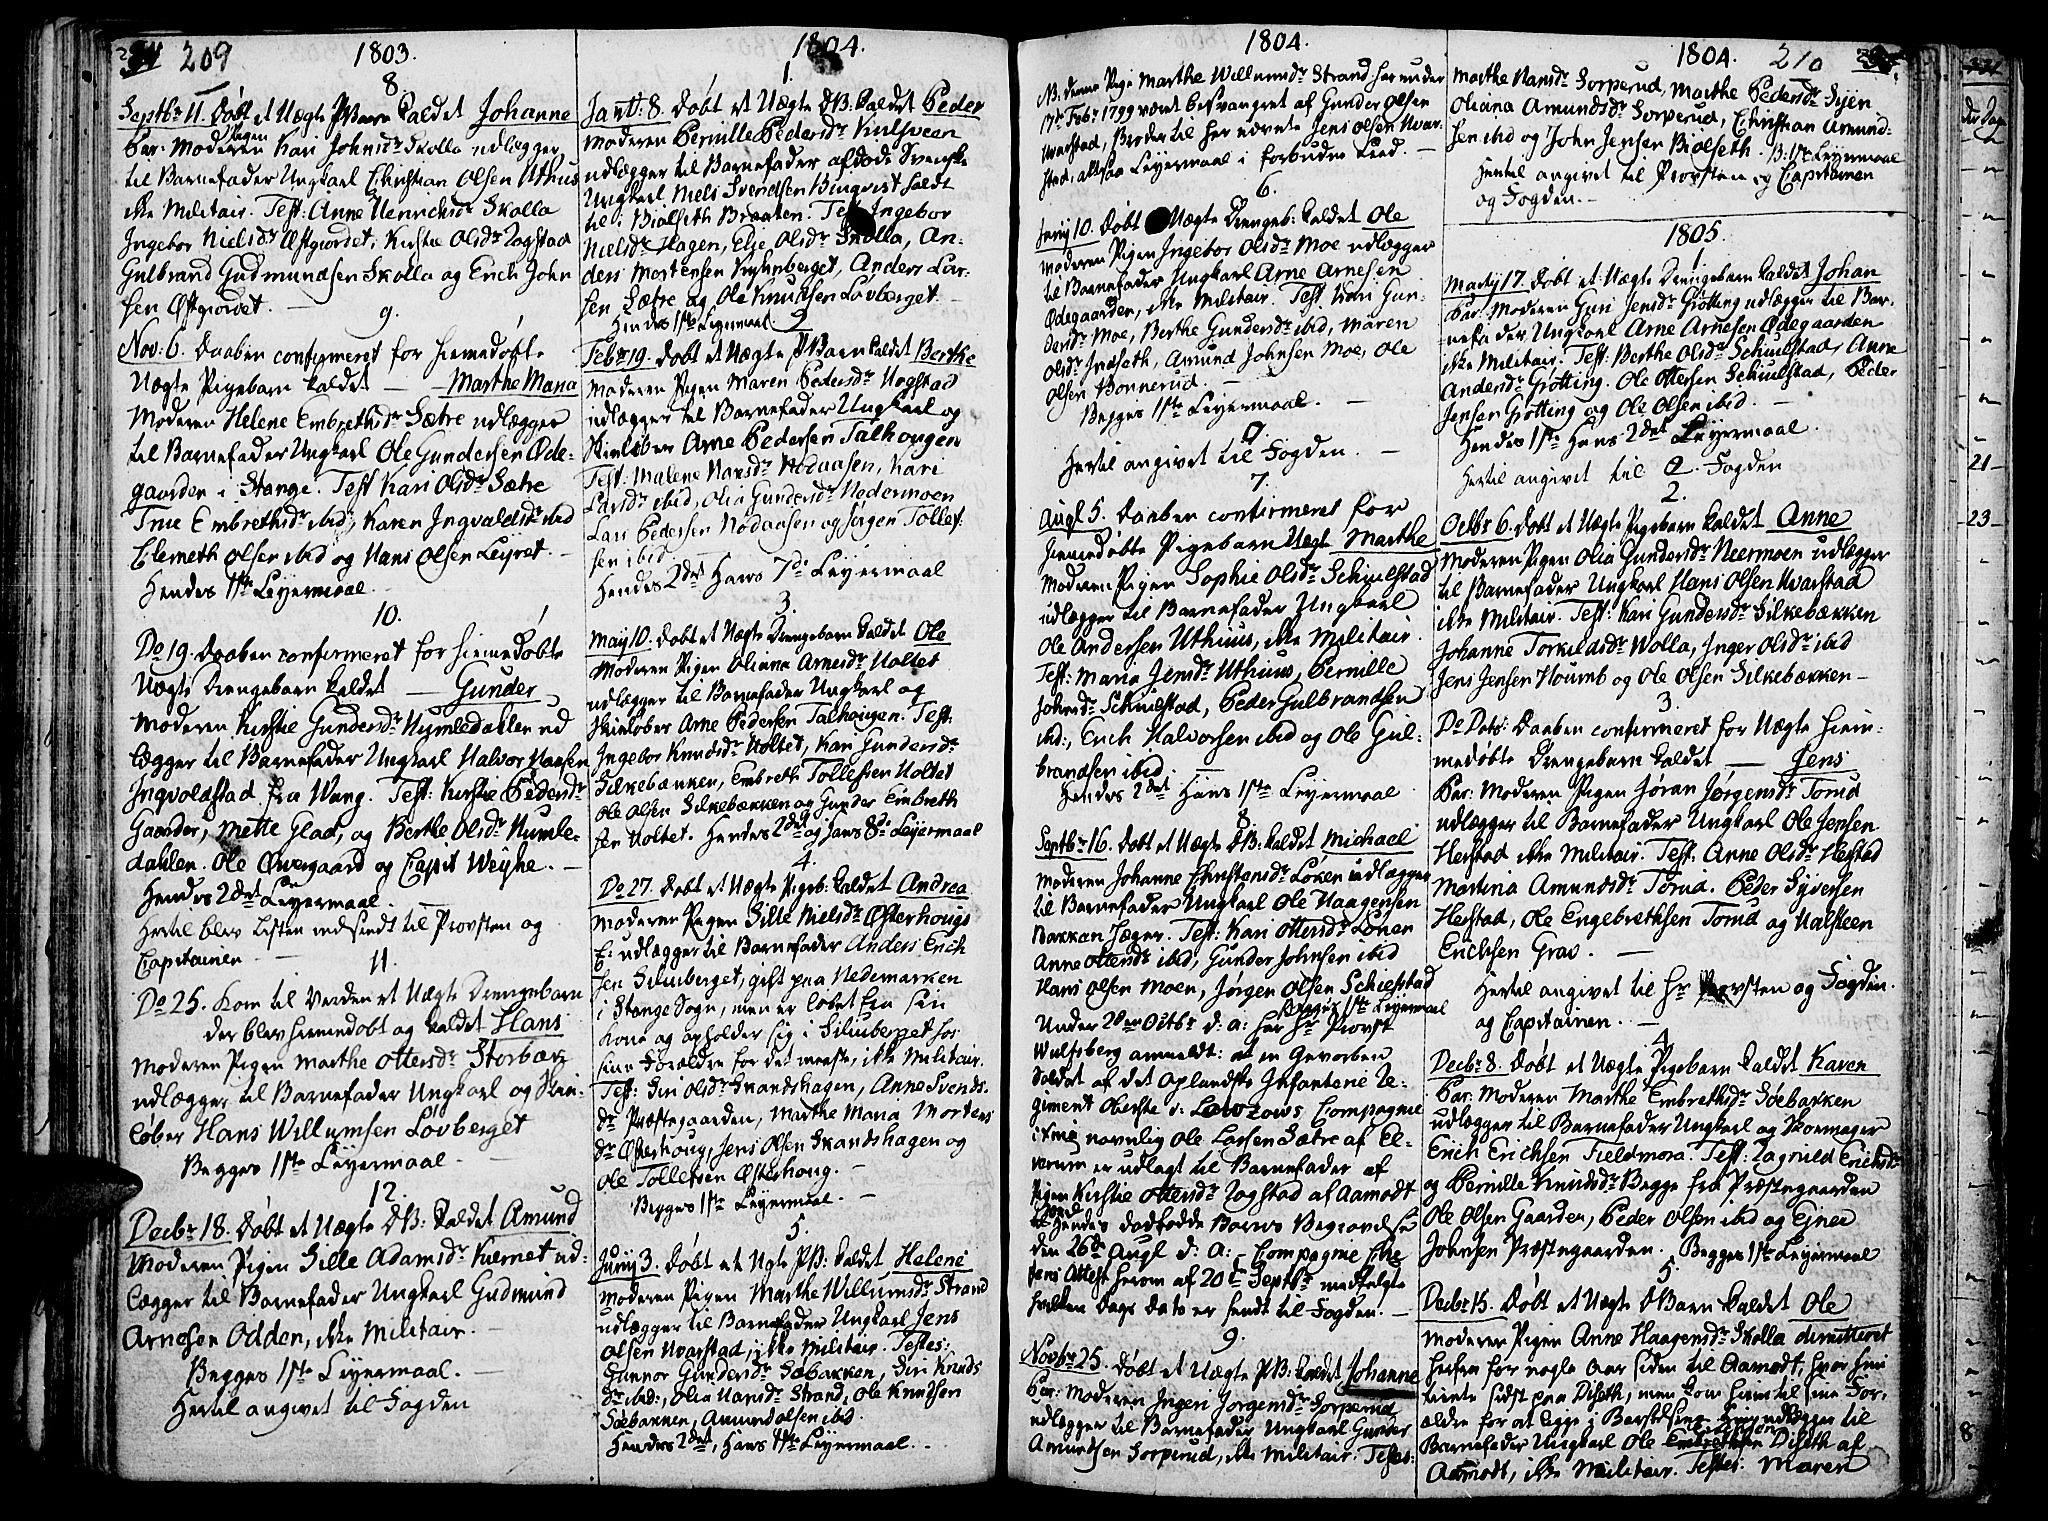 209
1803.
8
Septbr 11. Døbt et Uægte PBarn kaldet Johanne
Par: Moderen Pigen Kari Johnsdr Skolla udlægger
til Barnefader Ungkarl Christian Olsen Uthus
ikke Militair. Test: Anne Henrichsdr Skolla
Ingebor Nielsdr Østgiordet, Kirstie Olsdr Zogstad
Gulbrand Gudmundsen Skolla og Erich John
sen Østgiordet. —
9.
Nov: 6. Daaben confirmeret for hiemedøbte
Uægte Pigebarn kaldet — Marthe Maria
Moderen Helene Embrethsdr Sætre udlægger
til Barnefader Ungkarl Ole Gundersen Øde-
gaarden i Stange. Test Kari Olsdr Sætre
True Embrethsdr ibid, Karen Ingvaldsdr ibid
Elemeth Olsen ibid og Hans Olsen Leyret. —
Hendes 1ste Leyermaal.
10.
Do 19. Daaben confirmeret for hiemedøbte
Uægte Drengebarn kaldet — Gunder
Moderen Kirstie Gundersdr Humledahlen ud
lægger til Barnefader Ungkarl Halvor Hansen
Ingvoldstad fra Wang. Test: Kirstie Pedersdr
Gaarder, Mette Glad, og Berthe Olsdr Humle-
dahlen. Ole Øvergaard og Capit Weyhe. —
Hendes 2det Leyermaal.
Hertil blev Listen indsendt til Provsten og
Capitainen —
11.
Do 25. Kom til Verden et Uægte Drengebarn
der blev hiemedøbt og kaldet Hans
Moderen Pigen Marthe Ottersdr Storbæk
udlægger til Barnefader Ungkarl og Skie-
løber Hans Willumsen Lovberget
Begges 1ste Leyermaal. —
12.
Decbr 18. Døbt et Uægte DB: kaldet Amund
Moderen Pigen Sille Adamsdr Kiernet ud-
lægger til Barnefader Ungkarl Gudmund
Arnesen Odden, ikke Militair. —
Begges 1ste Leyermaal. —
Hertil angivet til Fogden
1804.
1.
Janv: 8. Døbt et Uægte DB: kaldet Peder
Moderen Pernille Pedersdr Kiulsveen
udlægger til Barnefader afdøde Svenske
Ungkarl Niels Svendsen Binqvist holdt
til i Biølseth Braaten. Test Ingebor
Nielsdr Hagen, Else Olsdr Skolla, An-
ders Mortensen Kiylnberget, Anders Lar-
sen Sætre og Ole Knudsen Lovberget. —
Hendes 1ste Leyermaal.
2
Febr 19. Døbt et Uægte PBarn kaldet Berthe
Moderen Pigen Maren Pedersdr Uogstad
udlægger til Barnefader Ungkarl og
Skieløber Arne Pedersen Talhougen
Test: Malene Hansdr Nodaasen, Kari
Larsdr ibid, Olia Gundersdr Nedermoen
Lars Pedersen Nodaasen og Jørgen Tollef-
sen ibid —
Hendes 2det Hans 7de Leyermaal
3.
May 10. Døbt et Uægte Drengebarn kaldet Ole
Moderen Pigen Oliana Arnesdr Holtet
udlægger til Barnefader Ungkarl og
Skieløber Arne Pedersen Talhougen. Test:
Ingebor Knudsdr Holtet, Kari Gundersdr
Silkebækken, Embreth Tollefsen Holtet
Ole Olsen Silkebækken og Gunder Embreth
sen Holtet. Hendes 2det og Hans 8de Leyermaal
4.
Do 27. Døbt et Uægte Pigeb: kaldet Andrea
Moderen Pigen Sille Nielsdr Østerhougs
E: udlægger til Barnefader Anders Erich
sen Siluberget, gift paa Hedemarken
i Stange Sogn, men er løbet fra sin
Kone og opholder sig i Siluberget hos
sine Forældre for det meeste, ikke Militair.
Test: Siri Olsdr Skandshagen, Anne Svends-
dr Præstegaarden, Marthe Maria Mortens
dr Østerhoug, Jens Olsen Skandshagen og
Ole Tollefsen Østerhoug. —
Begges 1ste Leyermaal. —
5.
Junij 3. Døbt et Ugte PB: kaldet Helene
Moderen Pigen Marthe Willumsdr Strand
udlægger til Barnefader Ungkarl Jens
Olsen Kvarstad, ikke Militair. Testes:
Gunnor Gundersdr Søbakken, Siri Knuds
dr ibid, Olia Hansdr Strand, Ole Knudsen
Søebakken, Amund Olsen ibid.
Hendes 2det, Hans 1ste Leyermaal. —
1804.
NB: denne Pige Marthe Willumsdr Strand har under
17de Febr 1799 været besvangret af Gunder Olsen
Kvarstad, Broder til her udvnte Jens Olsen Kvar-
stad, altsaa Leyermaal i forbudne Leed. —
6.
Junij 10. Døbt Uægte Drengeb: kaldet Ole
Moderen Pigen Ingebor Olsdr Moe udlægger
til Barnefader Ungkarl Arne Arnesen
Ødegaarden, ikke Militair. Test Kari Gun-
dersdr Moe, Berthe Gundersdr ibid, Maren
Olsdr Indseth, Amund Johnsen Moe, Ole
Olsen Bonnerud. —
Begges 1ste Leyermaal. —
Hertil angivet til Fogden. —
7.
Augl 5. Daaben confirmeret for
hiemedøbte Pigebarn Uægt Marthe
Moderen Pigen Sophie Olsdr Schiulstad
udlægger til Barnefader Ungkarl
Ole Andersen Uthuus, ikke Militair.
Test: Maria Jensdr Uthuus, Pernille
Johnsdr Schiulstad, Peder Gulbrandsen
ibid:, Erich Halvorsen ibid og Ole Gul-
brandsen ibid
Hendes 2det Hans 1ste Leyermaal
8.
Septbr 16. Døbt et Uægte DB: kaldet Michael
Moderen Johanne Christensdr Løken udlægger
til Barnefader Ungkarl Ole Haagensen
Bakken Jæger. Test: Kari Ottersdr Løken
Anne Ottersdr ibid, Gunder Johnsen ibid
Hans Olsen Moen, Jørgen Olsen Schiefstad
Begges 1ste Leyermaal
Under 28de Octbr d: a: har Hr Provst
Wulfsberg anmeldt: at en Gevorben
Soldat af det Oplandske Infanterie Re-
giment Oberste v: Lowzows Compagnie
navnlig Ole Larsen Sætre af El-
verum er udlagt til Barnefader af
Pigen Kirstie Ottersdr Zogstad af Aamodt
Hendes dødfødde Barns Begravelse
den 26de Augl d: a: — Compagnie Che
fens Attest herom af 20de Septbr medfølgte
hvilken Dags dato er sendt til Fogden. —
9.
Novbr 25. Døbt et Uægte PB: kaldet Johanne
Par: Moderen Ingeri Jørgensdr Sorperud
udlægger til Barnefader Ungkarl Gunder
Amundsen Sorperud, ikke Militair. Testes:
1804.
210
Marthe Hansdr Sorperud, Marthe Pedersdr Syen
Oliana Amundsdr Sorperud, Christian Amund-
sen ibid og John Jensen Biølseth. B: 1ste Leyermaal
Hertil angivet til Provsten og Capitainen
og Fogden. —
1805.
1.
Martij 17. Døbt et Uægte Drengebarn kaldet Johan
Par: Moderen Guri Jensdr Grøtting udlægger til Bar-
nefader Ungkarl Arne Arnesen Ødegaarden
ikke Militair. Test: Berthe Olsdr Schiulstad, Anne
Andersdr Grøtting. Ole Ottersen Schiulstad, Peder
Jensen Grøtting og Ole Olsen ibid. —
Hendes 1ste Hans 2det Leyermaal.
Hertil angivet til Fogden
2.
Octbr 6. Døbt et Uægte Pigebarn kaldet Anne
Moderen Pigen Olia Gundersdr Neermoen udlægger
til Barnefader Ungkarl Hans Olsen Kvarstad
ikke Militair. Test: Kari Gundersdr Silkebækken
Johanne Torkildsdr Wolla, Inger Olsdr ibid
Jens Jensen Houmb og Ole Olsen Silkebækken —
3.
Do Dato: Daaben confirmeret for Uægte Hiem-
medøbte Drengebarn kaldet — Jens
Par: Moderen Pigen Jøran Jørgensdr Torud
udlægger til Barnefader Ungkarl Ole Jensen
Herstad ikke Militair. Test: Anne Olsdr Herstad
Martina Amundsdr Torud. Peder Syversen
Herstad, Ole Engebrethsen Torud og Halsteen
Erichsen Grav. —
Hertil angivet til Hr Provsten og Fogden.
og Capitainen. —
4
Decbr 8. Døbt et Uægte Pigebarn kaldet Karen
Par: Moderen Marthe Embrethsdr Søebakken
udlægger til Barnefader Ungkarl og Skomager
Erich Erichsen Fieldmora. Test: Ragnild Erichsdr
og Pernille Knudsdr Begge fra Præstegaarden
Ole Olsen Gaarder, Peder Olsen ibid og Ejner
Johnsen Præstegaarden. Begges 1ste Leyermaal
5
Decbr 15. Døbt et Uægte DBarn kaldet Ole
Moderen Pigen Anne Haagensdr Skolla dimitteret
herfra for nogle Aar siden til Aamodt, hvor hun
tiente sidst paa Diseth, men kom hiem til sine For-
ældre for at ligge i Barselseng. Hun udlægger til
Barnefader Ungkarl Ole Diseth af
Aamodt, ikke Militair. Testes: Maren
21 —
23 —
8